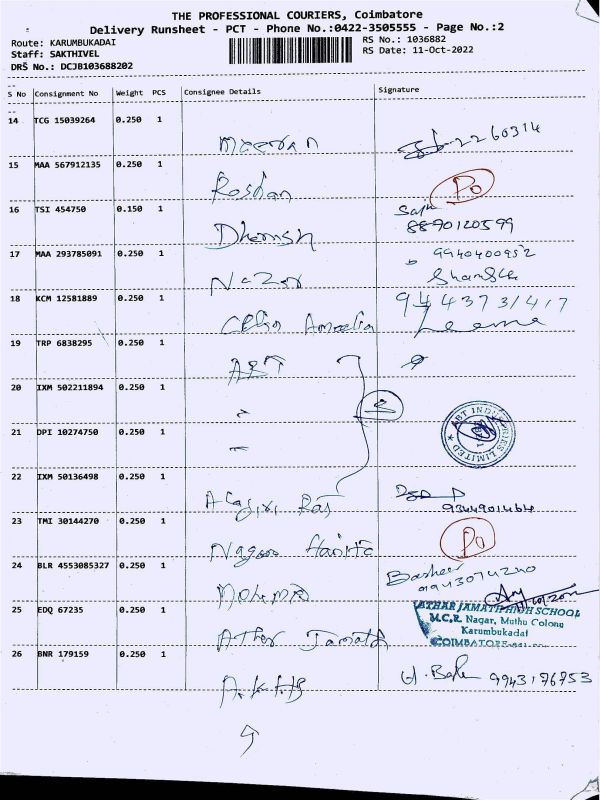 THE PROFESSIONAL COURIERS, Coimbatore
Delivery Runsheet - PCT - Phone No.:0422-3505555 - Page No.:2
Route: KARUMBUKADAI
RS No.: 1036882
Staff: SAKTHIVEL
RS Date: 11-Oct-2022
DRS No.: DCJB103688202
S No Consignment No Weight PCS Consignee Details Signature
14 TCG 15039264 0.250 1
Meeran
2260314
15 MAA 567912135 0.250 1
Roshan
PO
16 TSI 454750 0.150 1
Dhanush
8890120599
17 MAA 293785091 0.250 1
Nazar
9940400952
18 KCM 12581889 0.250 1
9443731417
Leema
19 TRP 6838295 0.250 1
ABT
20 IXM 502211894 0.250 1
"
3
21 DPI 10274750 0.250 1
"
ABT INDUSTRIES LIMITED
22 IXM 50136498 0.250 1
Alagiri Raj
9344901464
23 TMI 30144270 0.250 1
PO
24 BLR 4553085327 0.250 1
Basheer
9943074240
25 EDQ 67235 0.250 1
Athar Jamath
ATHAR JAMATH HIGH SCHOOL
M.C.R. Nagar, Muthu Colony
Karumbukadai
COIMBATORE
26 BNR 179159 0.250 1
A.K.HB
9943176753